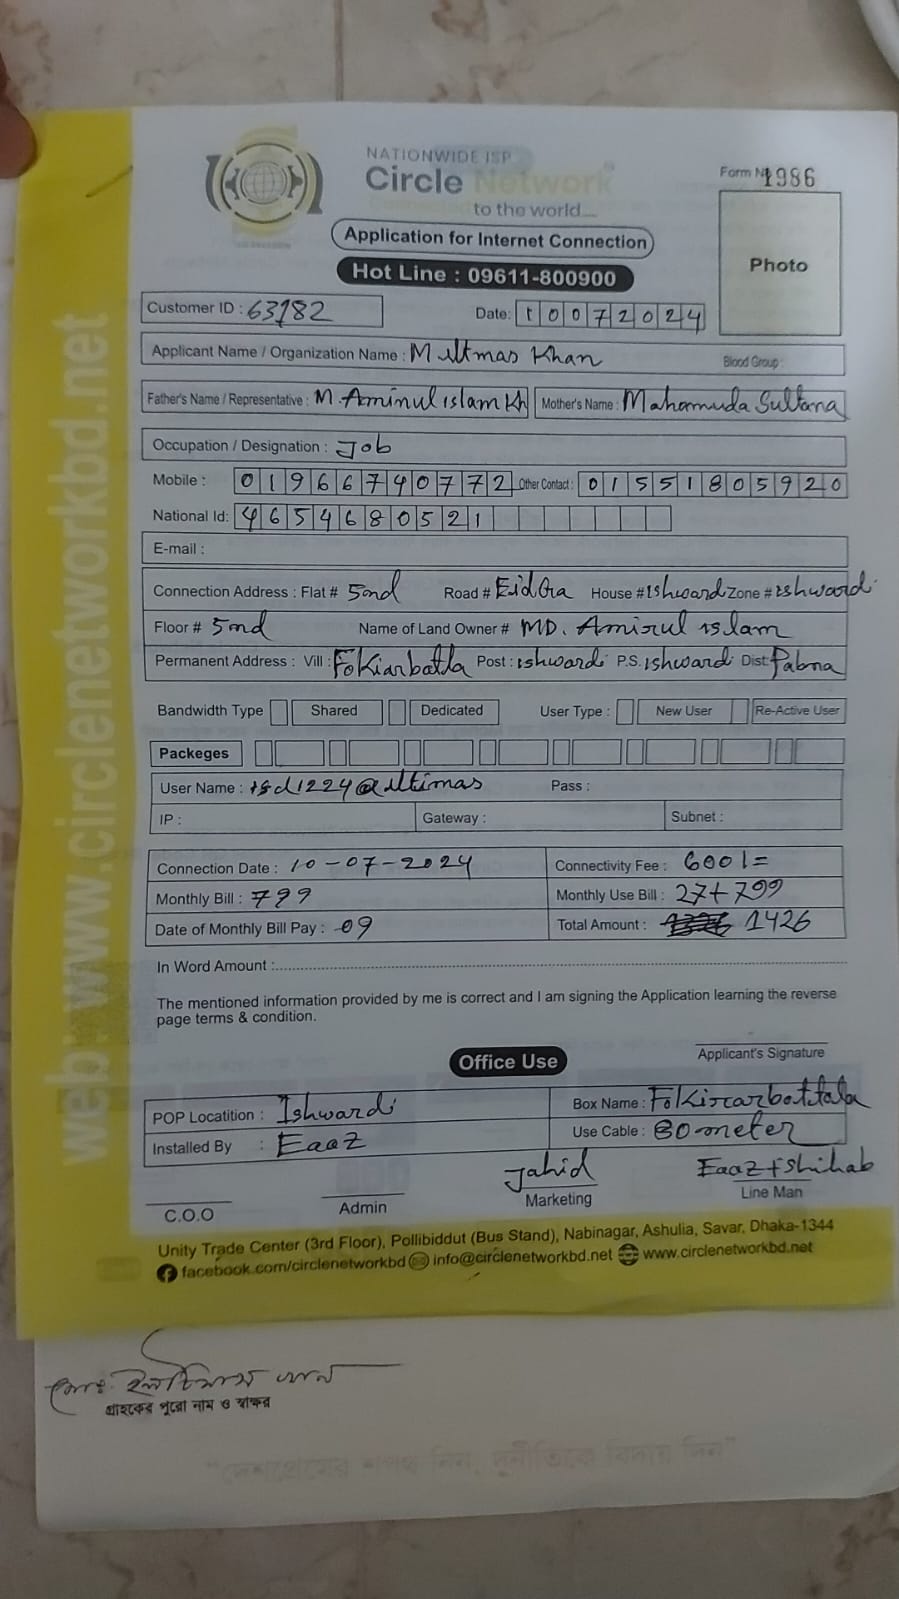 NATIONWIDE ISP
Circle Network
to the world...
Form No 1986
Application for Internet Connection
Hot Line : 09611-800900
Photo
Customer ID : 63182
Date: 10072024
Applicant Name / Organization Name : M Khan Blood Group :
Father's Name / Representative : M. Aminul islam Kh Mother's Name : Mahamuda Sultana
Occupation / Designation : Job
Mobile : 01966740772 Other Contact : 01551805920
National Id: 4654680521
E-mail :
Connection Address : Flat # 5nd Road # EidGa House # ishwardi Zone # ishwardi
Floor # 5nd Name of Land Owner # MD. Amirul islam
Permanent Address : Vill : Fokiarbatla Post : ishwardi P.S. ishwardi Dist: Pabna
Bandwidth Type Shared Dedicated User Type : New User Re-Active User
Packeges
User Name : Pass :
IP : Gateway : Subnet :
Connection Date : 10-07-2024 Connectivity Fee : 600/=
Monthly Bill : 799 Monthly Use Bill : 27+799
Date of Monthly Bill Pay : 09 Total Amount : 1426
In Word Amount :
The mentioned information provided by me is correct and I am signing the Application learning the reverse
page terms & condition.
Applicant's Signature
Office Use
POP Locatition : Ishwardi Box Name :
Installed By : Eaaz Use Cable : 80 meter
Jahid Eaaz + Shihab
C.O.O Admin Marketing Line Man
Unity Trade Center (3rd Floor), Pollibiddut (Bus Stand), Nabinagar, Ashulia, Savar, Dhaka-1344
facebook.com/circlenetworkbd info@circlenetworkbd.net www.circlenetworkbd.net
web: www.circlenetworkbd.net
মোঃ ইলতিমাস খান
গ্রাহকের পুরো নাম ও স্বাক্ষর
"দেশপ্রেমের শপথ নিন, দুর্নীতিকে বিদায় দিন"